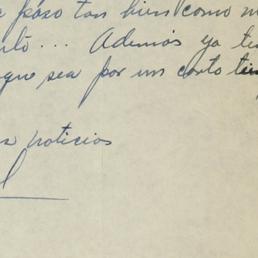 paso tan bien como
... Además ya te
que sea por un corto
noticias